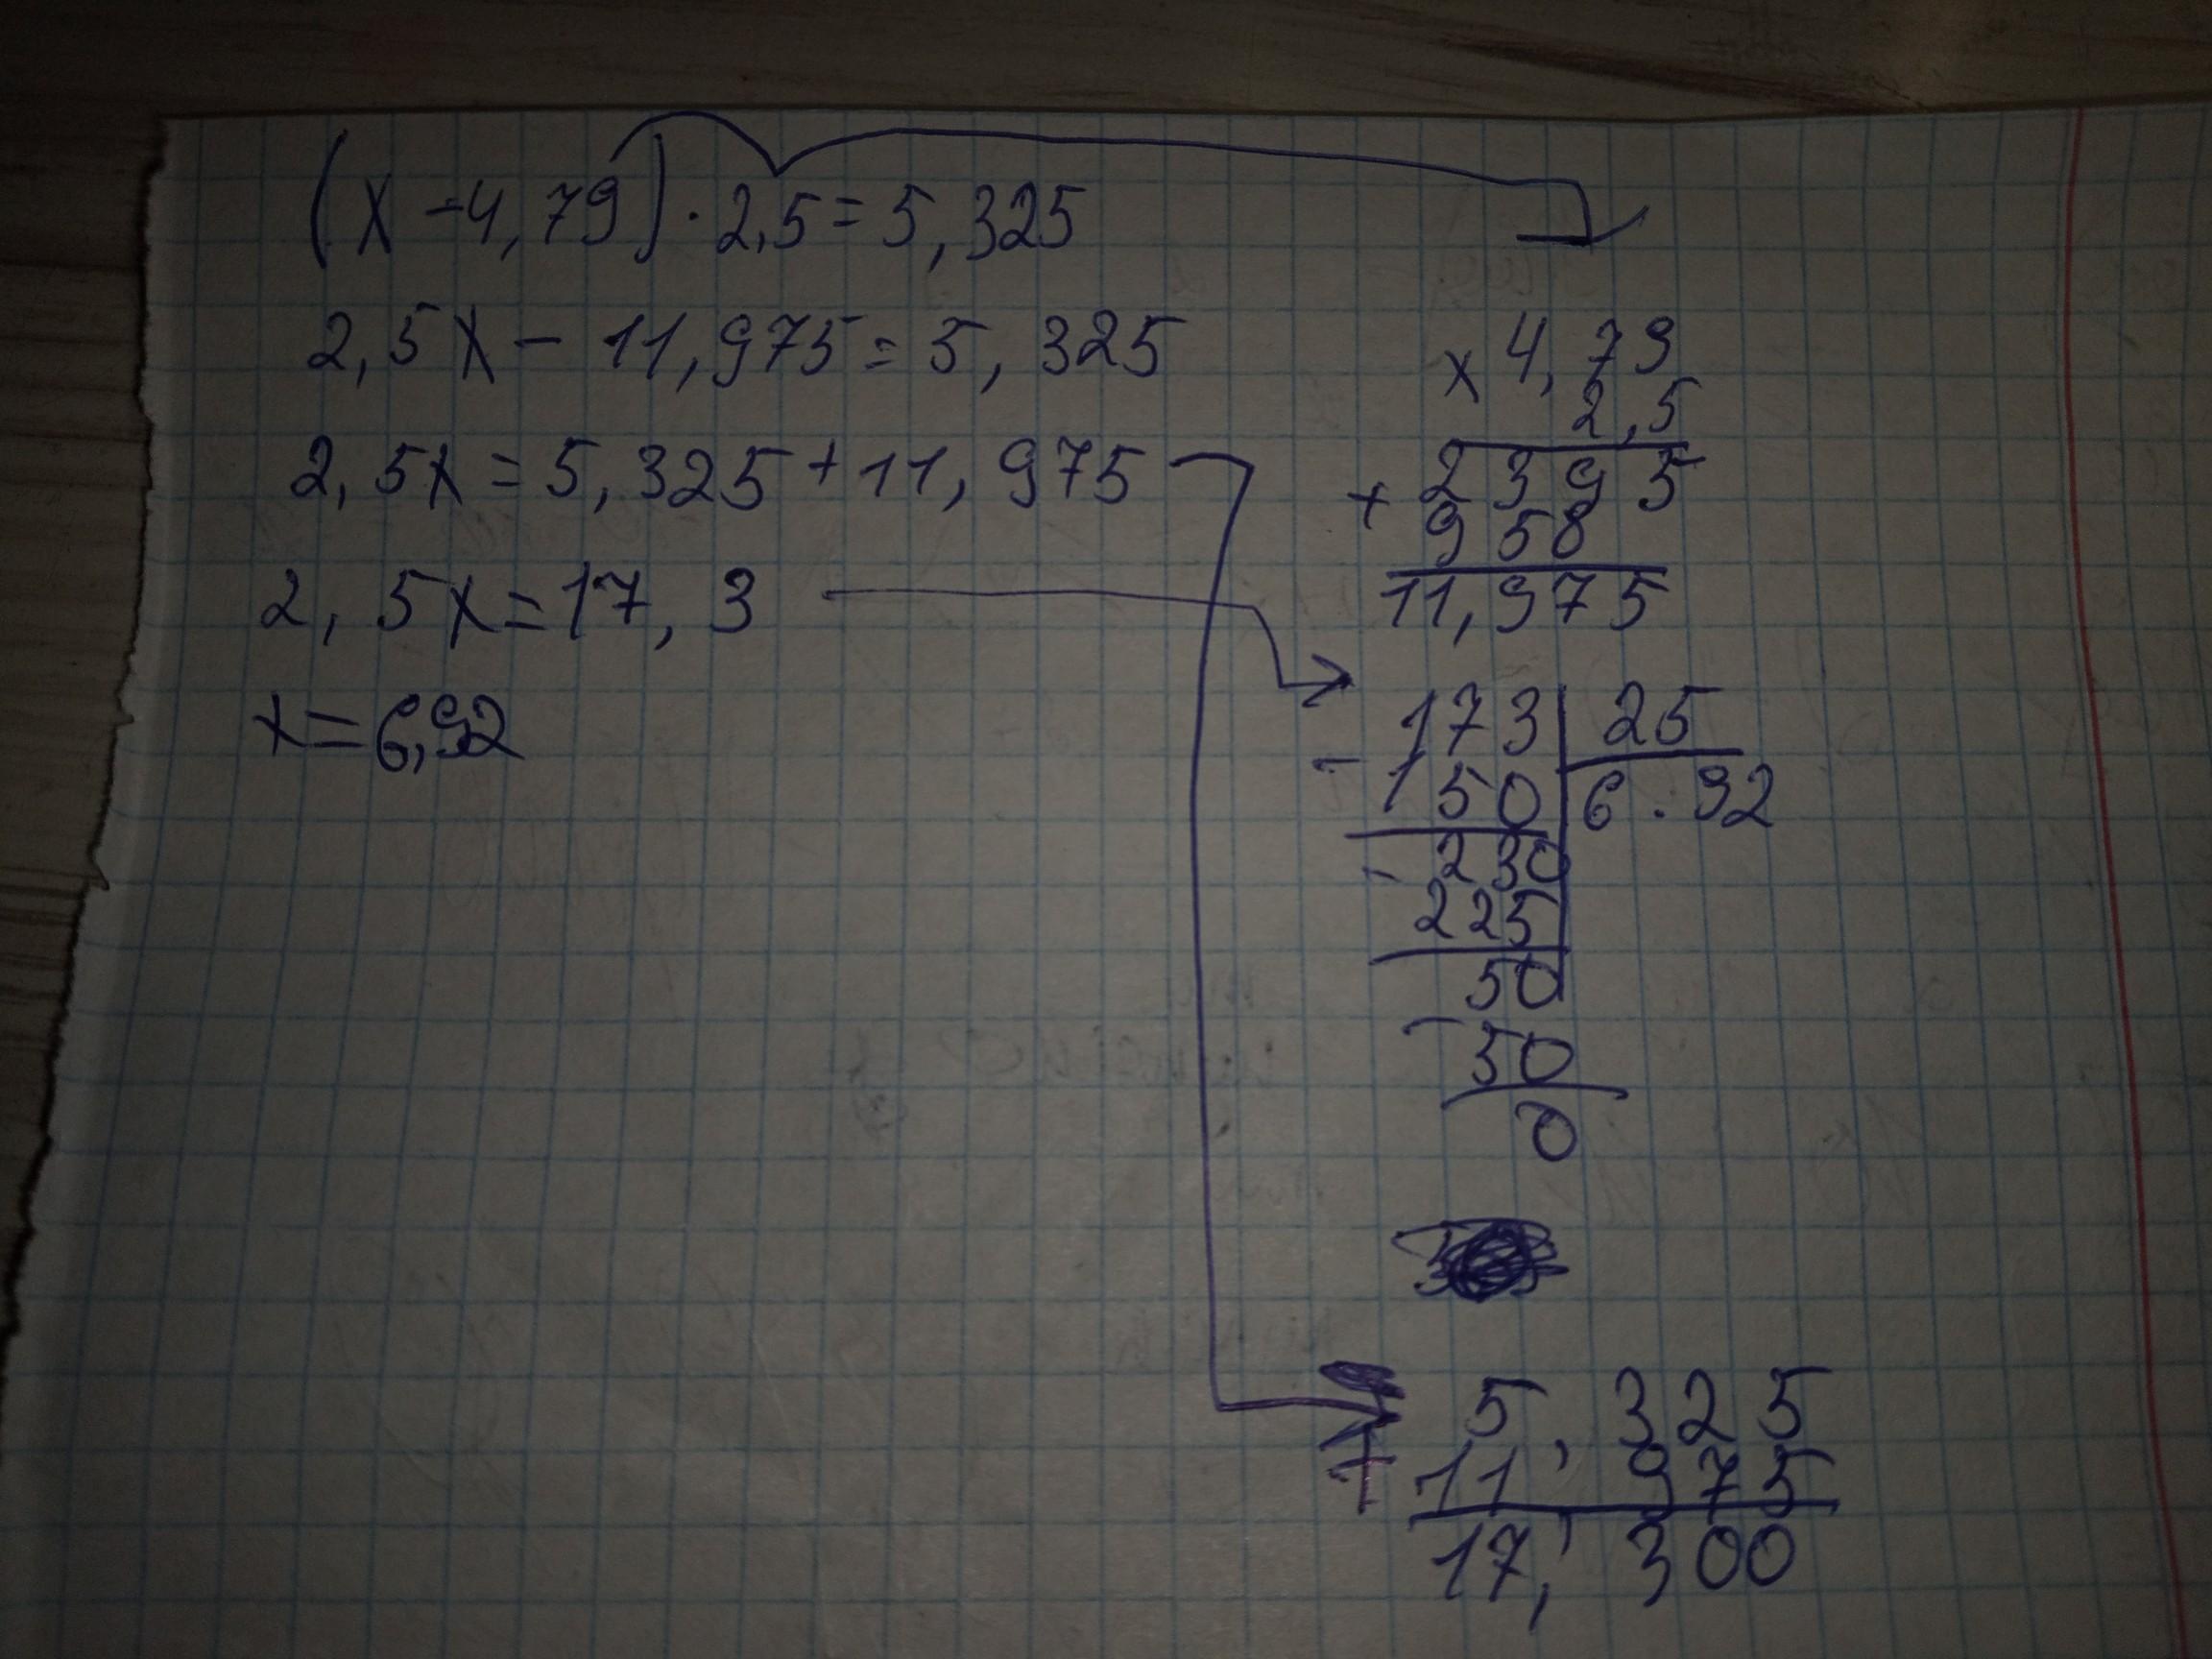 (x-4,79)·2,5=5,325
2,5x-11,975=5,325
2,5x=5,325+11,975
2,5x=17,3
x=6,92
x 4,79
2,5
+ 2395
958
11,975
173 | 25
- 150 | 6.92
- 230
225
50
- 50
0
+ 5,325
11,975
17,300